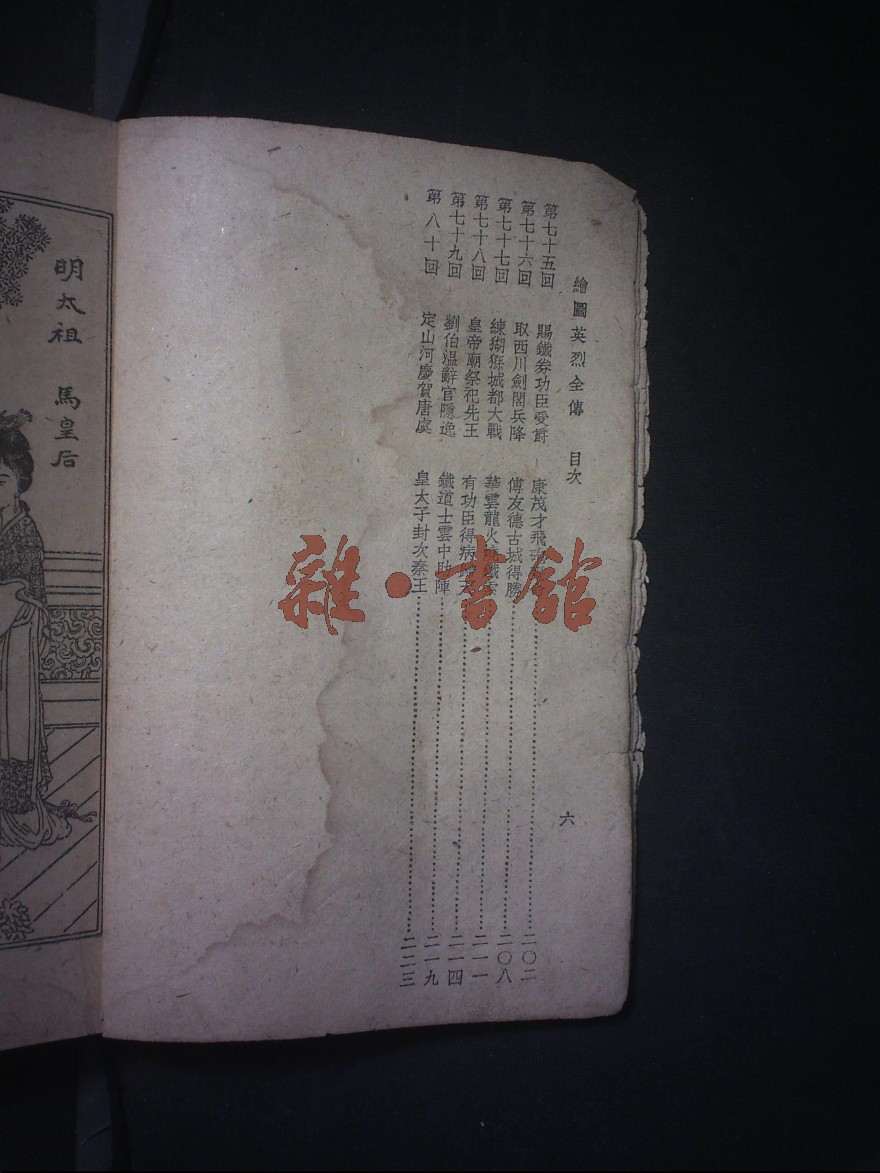 繪圖英烈全傳 目次 六
第七十五回 賜鐵券功臣受爵 康茂才飛 二〇二
第七十六回 取西川劍閣兵降 傅友德古城得勝 二〇八
第七十七回 練猢猻城都大戰 華雲龍火 鐵 二一一
第七十八回 皇帝廟祭祀先王 有功臣得病 二一四
第七十九回 劉伯溫辭官隱逸 鐵道士雲中助陣 二一九
第八十回 定山河慶賀唐虞 皇太子封次秦王 二二三
明太祖 馬皇后
雜·書館